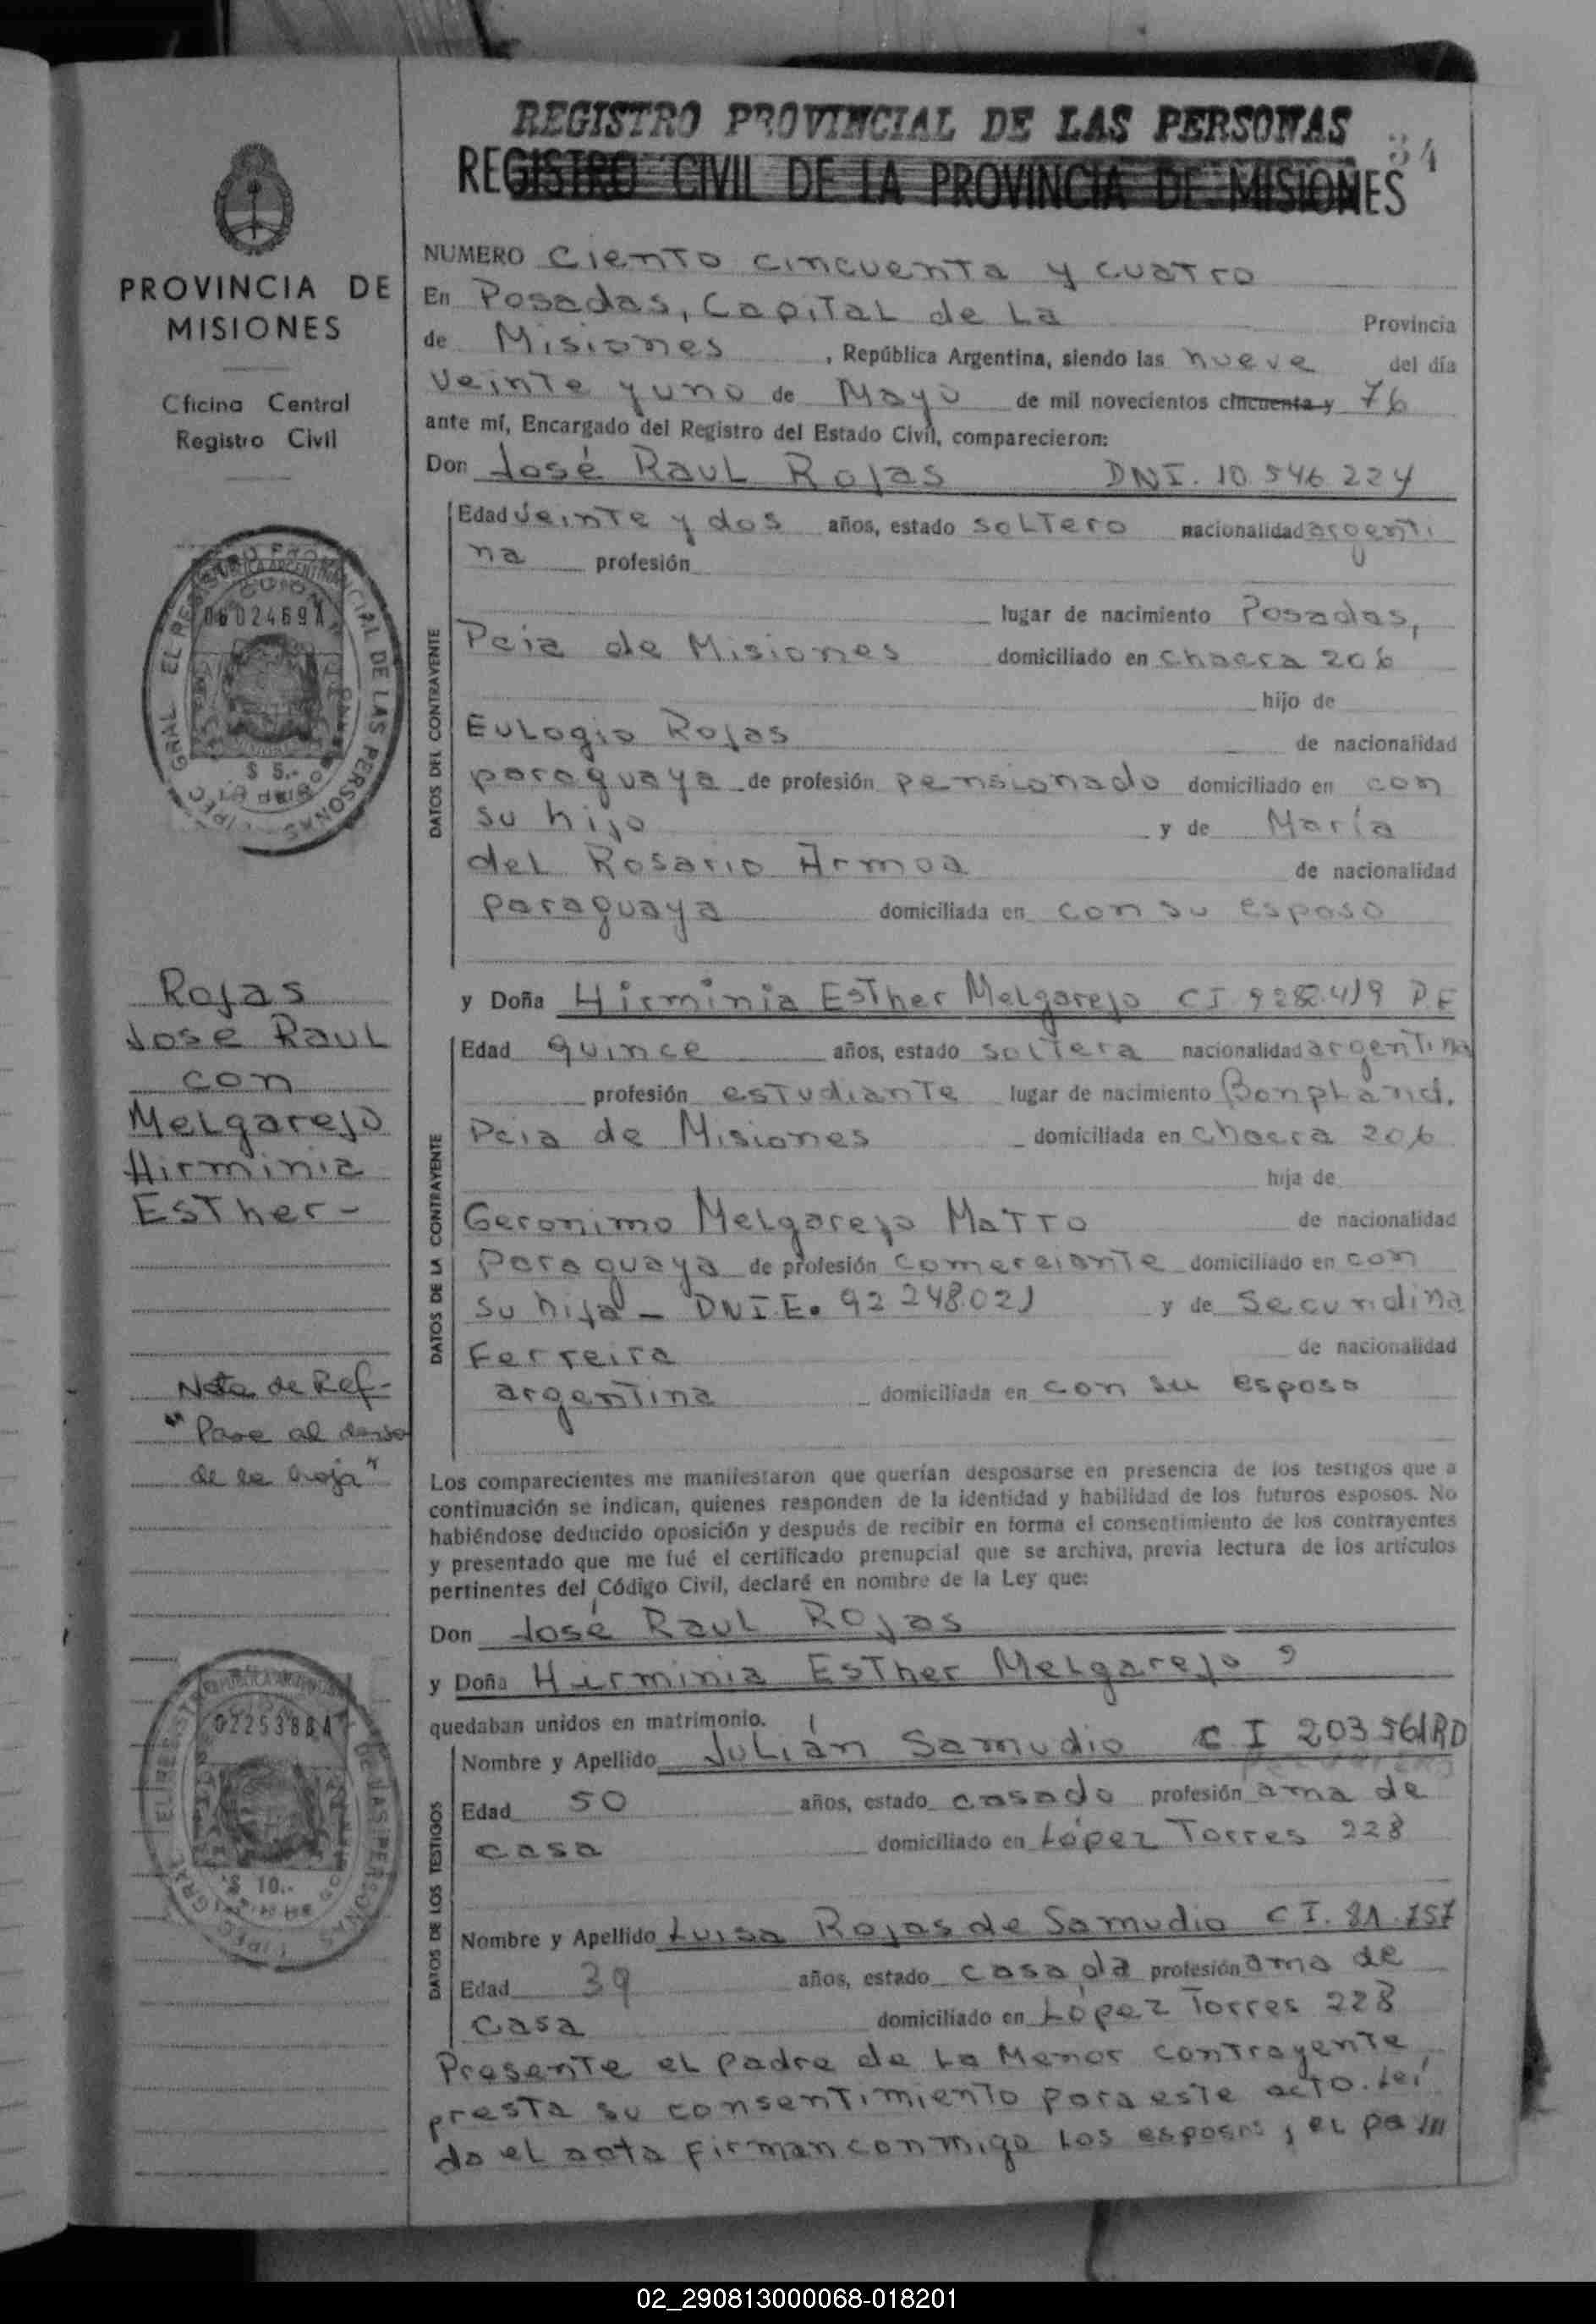 REGISTRO PROVINCIAL DE LAS PERSONAS
34
REGISTRO CIVIL DE LA PROVINCIA DE MISIONES
PROVINCIA DE
MISIONES
Oficina Central
Registro Civil
0602469A
$ 5.-
Rojas
Jose Raul
con
Melgarejo
Hirminia
Esther-
Nota de Ref-
"Pase al dorso
de la hoja"
0225388A
$ 10.-
NUMERO Ciento cincuenta y cuatro
En Posadas, Capital de La Provincia
de Misiones, República Argentina, siendo las nueve del día
veinte y uno de Mayo de mil novecientos cincuenta y 76
ante mí, Encargado del Registro del Estado Civil, comparecieron:
Don José Raul Rojas DNI. 10.546.224
DATOS DEL CONTRAYENTE
Edad veinte y dos años, estado soltero nacionalidad argenti
na profesión
lugar de nacimiento Posadas,
Pcia de Misiones domiciliado en chacra 206
hijo de
Eulogio Rojas de nacionalidad
paraguaya de profesión pensionado domiciliado en con
su hijo y de María
del Rosario Armoa de nacionalidad
paraguaya domiciliada en con su esposo
y Doña Hirminia Esther Melgarejo CI 9282.419 P.F
DATOS DE LA CONTRAYENTE
Edad quince años, estado soltera nacionalidad argentina
profesión estudiante lugar de nacimiento Bonpland.
Pcia de Misiones domiciliada en chacra 206
hija de
Geronimo Melgarejo Matto de nacionalidad
Paraguaya de profesión comerciante domiciliado en con
su hija - DNI.E. 92 248.021 y de Secundina
Ferreira de nacionalidad
argentina domiciliada en con su esposo
Los comparecientes me manifestaron que querían desposarse en presencia de los testigos que a
continuación se indican, quienes responden de la identidad y habilidad de los futuros esposos. No
habiéndose deducido oposición y después de recibir en forma el consentimiento de los contrayentes
y presentado que me fué el certificado prenupcial que se archiva, previa lectura de los artículos
pertinentes del Código Civil, declaré en nombre de la Ley que:
Don José Raul Rojas
y Doña Hirminia Esther Melgarejo,
quedaban unidos en matrimonio.
DATOS DE LOS TESTIGOS
Nombre y Apellido Julián Samudio C I 203561RD
Edad 50 años, estado casado profesión ama de
casa domiciliado en López Torres 228
Nombre y Apellido Luisa Rojas de Samudio CI. 81.757
Edad 39 años, estado casada profesión ama de
casa domiciliado en López Torres 228
Presente el padre de la Menor contrayente
presta su consentimiento para este acto. Leí
da el acta firman conmigo los esposos, el pa
02_290813000068-018201